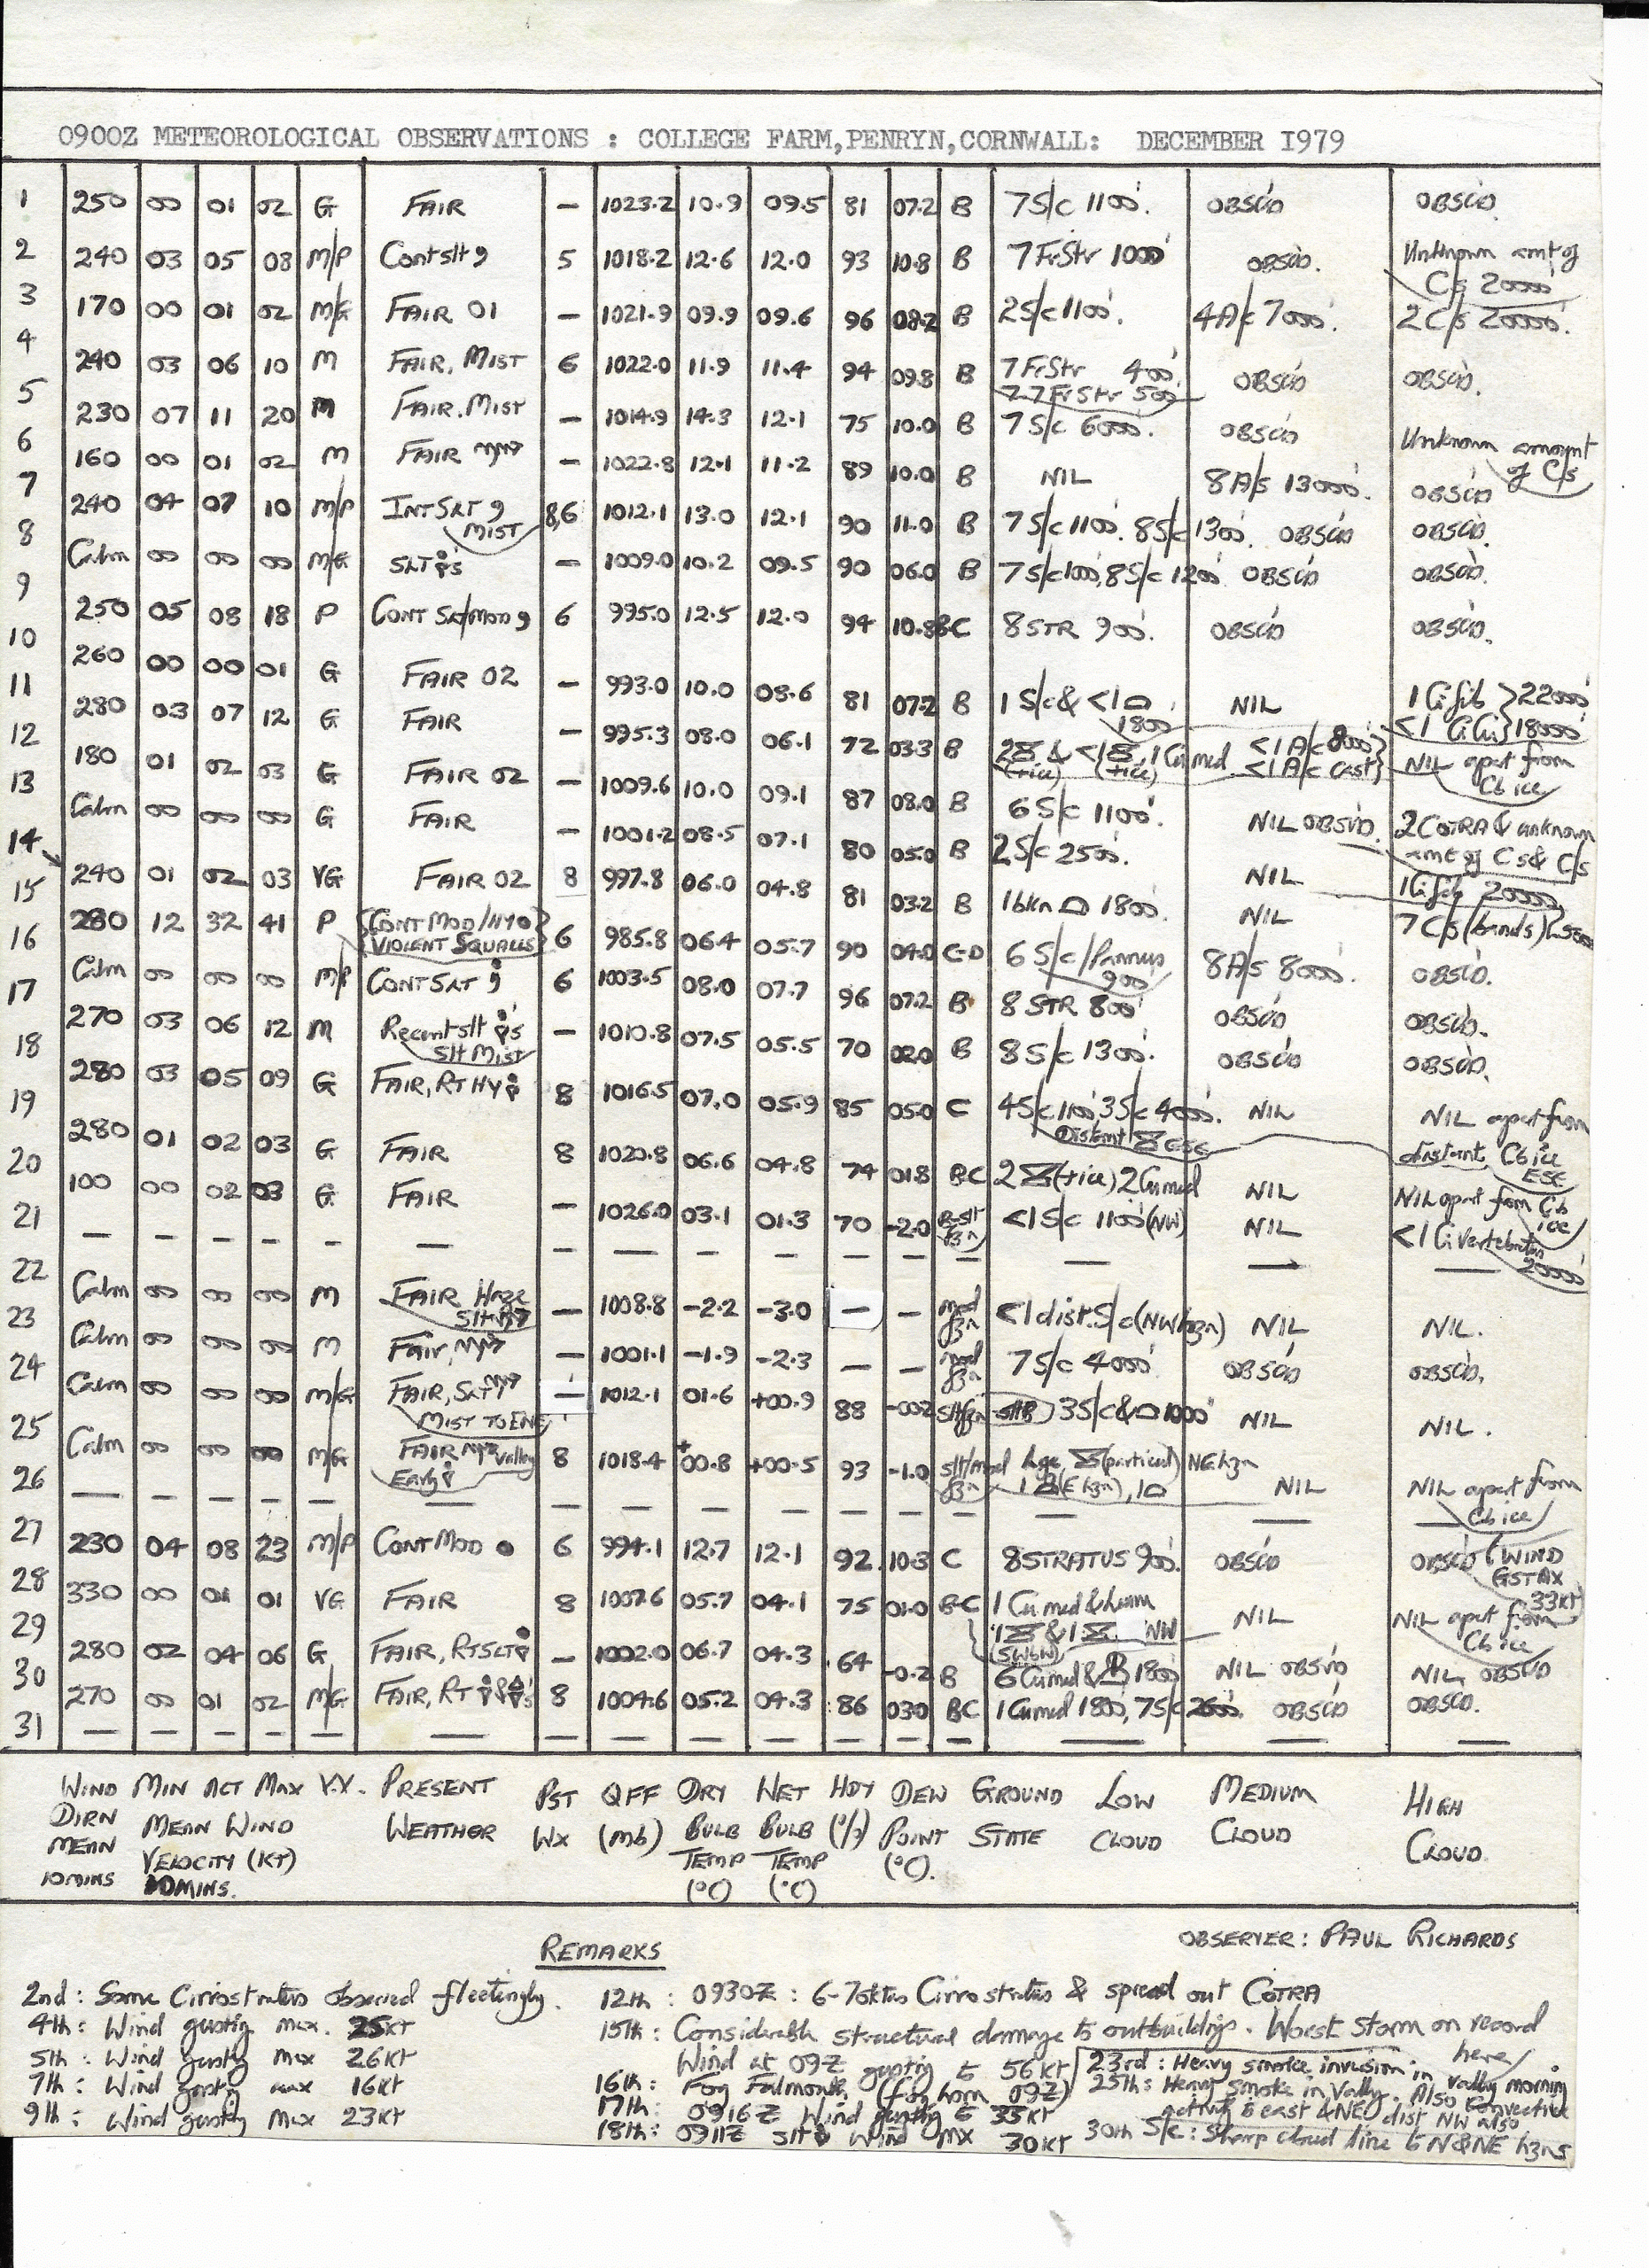 0900Z METEOROLOGICAL OBSERVATIONS : COLLEGE FARM,PENRYN,CORNWALL: DECEMBER I979
1 250 00 01 02 G FAIR — 1023.2 10.9 09.5 81 07.2 B 7S/c 1100'. OBSC'D OBSC'D.
2 240 03 05 08 M/P Cont slt 9 5 1018.2 12.6 12.0 93 10.8 B 7 FrStr 1000' OBSC'D. Unknown amt of Cs 20000'
3 170 00 01 02 M/G FAIR 01 — 1021.9 09.9 09.6 96 08.2 B 2S/c 1100'. 4A/c 7000'. 2C/s 20000'.
4 240 03 06 10 M FAIR, MIST 6 1022.0 11.9 11.4 94 09.8 B 7 FrStr 400' 77FrStr 500' OBSC'D OBSC'D.
5 230 07 11 20 M FAIR. MIST — 1014.9 14.3 12.1 75 10.0 B 7 S/c 6000'. OBSC'D Unknown amount of C/s
6 160 00 01 02 M FAIR — 1022.8 12.1 11.2 89 10.0 B NIL 8A/s 13000'. OBSC'D
7 240 04 07 10 M/P INT SLT 9 MIST 8,6 1012.1 13.0 12.1 90 11.0 B 7S/c 1100'. 8S/c 1300'. OBSC'D OBSC'D.
8 Calm 00 00 00 M/G SLT — 1009.0 10.2 09.5 90 06.0 B 7S/c 100', 8S/c 1200' OBSC'D OBSC'D.
9 250 05 08 18 P CONT SLT/MOD 9 6 995.0 12.5 12.0 94 10.8 BC 8STR 900'. OBSC'D OBSC'D.
10 260 00 00 01 G FAIR 02 — 993.0 10.0 08.6 81 07.2 B 1 S/c & <1 1800' NIL 1 Ci fib 22000' <1 Ci 18000'
11 280 03 07 12 G FAIR — 995.3 08.0 06.1 72 03.3 B 2 & <1 1 Cu med <1 A/c 8000' <1 A/c cast NIL apart from Cb ice
12 180 01 02 03 G FAIR 02 — 1009.6 10.0 09.1 87 08.0 B 6 S/c 1100'. NIL OBSV'D. 2 COTRA & unknown amt of Cs & C/s
13 Calm 00 00 00 G FAIR — 1001.2 08.5 07.1 80 05.0 B 2S/c 2500'. NIL 1 Ci fib 20000'
14 240 01 02 03 VG FAIR 02 8 997.8 06.0 04.8 81 03.2 B 1 bkn 1800'. NIL 7 C/s (bands)
15 280 12 32 41 P CONT MOD/HY VIOLENT SQUALLS 6 985.8 06.4 05.7 90 04.0 C-D 6 S/c/Pannus 900' 8A/s 8000'. OBSC'D.
16 Calm 00 00 00 M/P CONT SLT 6 1003.5 08.0 07.7 96 07.2 B 8 STR 800' OBSC'D OBSC'D.
17 270 03 06 12 M Recent slt Slt Mist — 1010.8 07.5 05.5 70 02.0 B 8 S/c 1300'. OBSC'D OBSC'D.
18 280 03 05 09 G FAIR, RT HY 8 1016.5 07.0 05.9 85 05.0 C 4S/c 1100' 3S/c 4000'. Distant ESE NIL NIL apart from distant Cb ice ESE
19 280 01 02 03 G FAIR 8 1020.8 06.6 04.8 74 01.8 BC 2 (+ice) 2 Cu med NIL NIL apart from Cb ice
20 100 00 02 03 G FAIR — 1026.0 03.1 01.3 70 -2.0 B-slt fzn <1 S/c 1100' (NW) NIL <1 Ci vertebratus 20000'
21 — — — — — — — — — — — — — — — —
22 Calm 00 00 00 M FAIR Haze — 1008.8 -2.2 -3.0 — — mod fzn <1 dist. S/c (NW hzn) NIL NIL.
23 Calm 00 00 00 M Fair, — 1001.1 -1.9 -2.3 — — mod fzn 7 S/c 4000' OBSC'D OBSC'D.
24 Calm 00 00 00 M/G FAIR, SLT MIST TO ENE — 1012.1 01.6 +00.9 88 -00.2 slt fzn 3S/c & 1000' NIL NIL.
25 Calm 00 00 00 M/G FAIR valley Early 8 1018.4 +00.8 +00.5 93 -1.0 slt/mod fzn lge (particul) NE hzn 1 (E hzn), 1 NIL NIL apart from Cb ice
26 — — — — — — — — — — — — — — — —
27 230 04 08 23 M/P CONT MOD 6 994.1 12.7 12.1 92 10.3 C 8STRATUS 900'. OBSC'D OBSC'D (WIND GST MX 33KT)
28 330 00 01 01 VG FAIR 8 1007.6 05.7 04.1 75 01.0 B-C 1 Cu med & hum 1 & 1 NW (SWbW) NIL NIL apart from Cb ice
29 280 02 04 06 G FAIR, RT SLT — 1002.0 06.7 04.3 64 -0.2 B 6 Cu med & 1800' NIL OBSV'D NIL OBSV'D
30 270 00 01 02 M/G FAIR, RT 8 1004.6 05.2 04.3 86 03.0 BC 1 Cu med 1800', 7S/c 2600'. OBSC'D OBSC'D.
31 — — — — — — — — — — — — — — — —
WIND MIN ACT MAX V.V. PRESENT PST QFF DRY WET HDY DEW GROUND LOW MEDIUM HIGH
DIRN MEAN WIND WEATHER WX (mb) BULB BULB (%) POINT STATE CLOUD CLOUD CLOUD
MEAN VELOCITY (KT) TEMP TEMP (°C).
10MINS 10MINS. (°C) (°C)
OBSERVER: PAUL RICHARDS
REMARKS
2nd: Some Cirrostratus observed fleetingly.
4th: Wind gusting max. 25KT
5th: Wind gusting max 26KT
7th: Wind gusting max 16KT
9th: Wind gusting max 23KT
12th: 0930Z: 6-7oktas Cirrostratus & spread out COTRA
15th: Considerable structural damage to outbuildings. Worst storm on record here
Wind at 09Z gusting to 56KT
16th: Fog Falmouth (fog horn 09Z)
17th: 0916Z Wind gusting to 35KT
18th: 0911Z slt Wind MX 30KT
23rd: Heavy smoke invasion in valley morning
25th: Heavy smoke in Valley. Also Convective
activity to east & NE dist NW also
30th S/c: Sharp cloud line to N & NE hzns